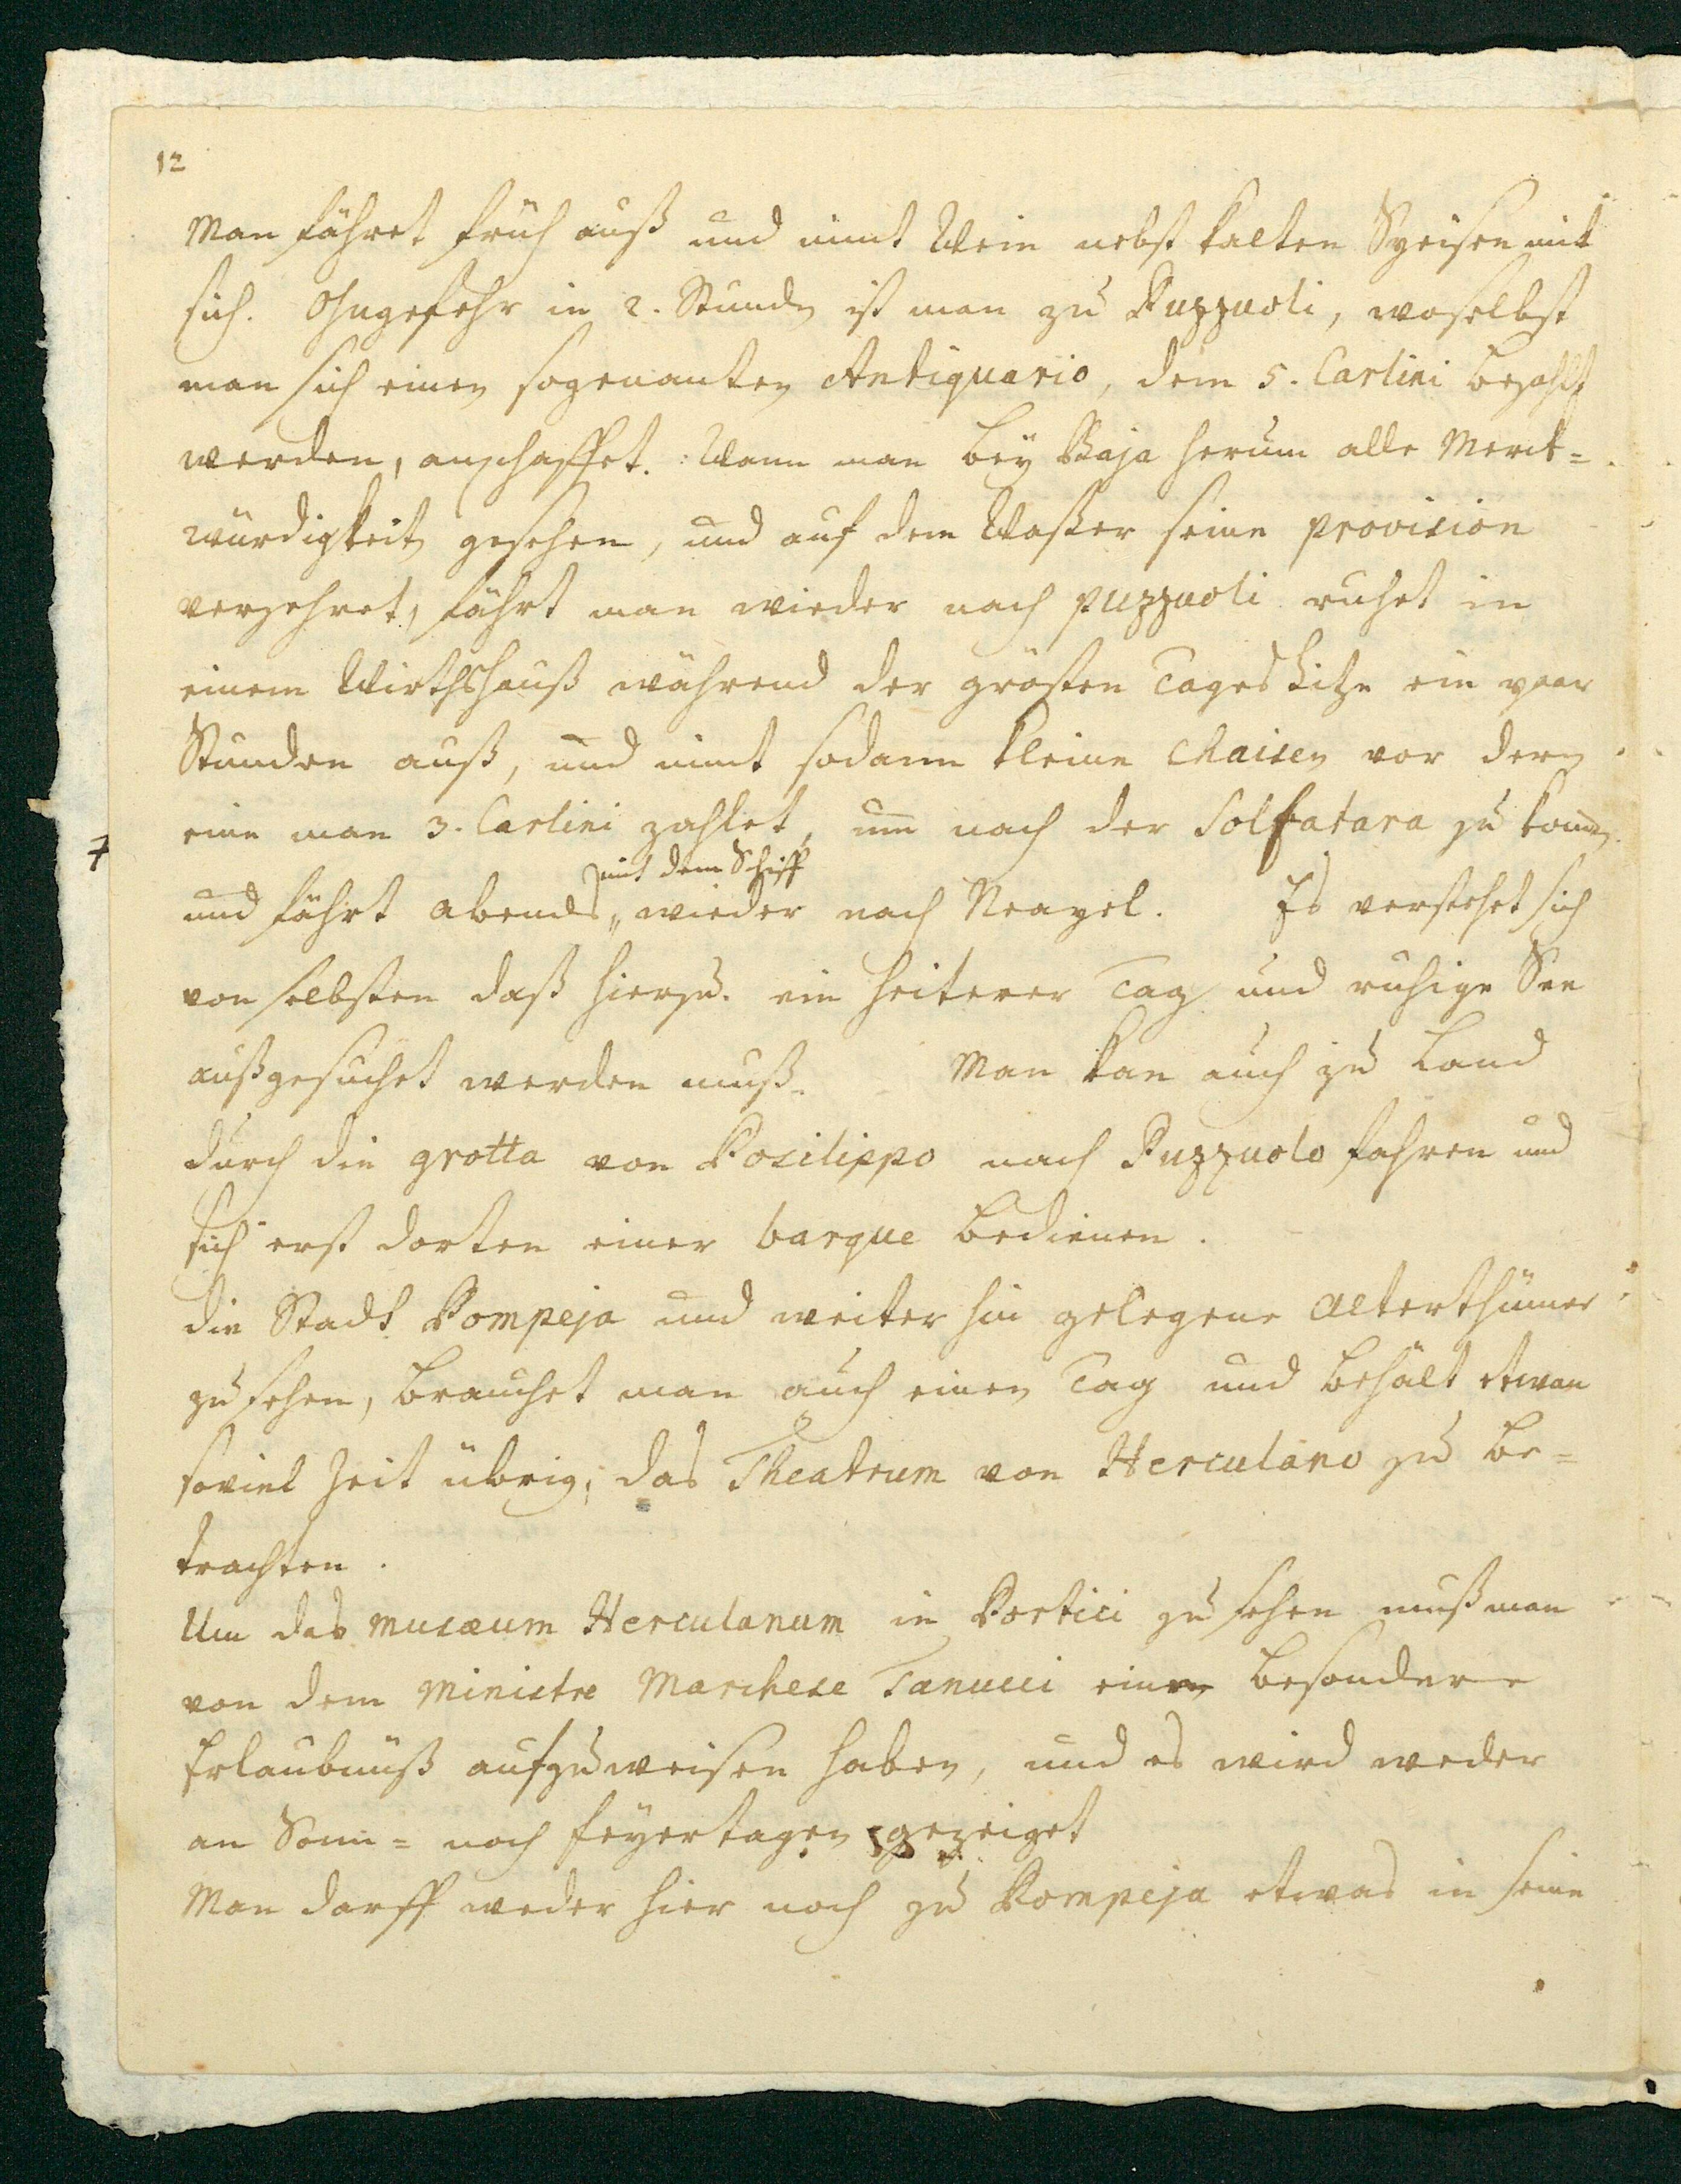 12
Man fähret früh auß und nimt Wein nebst kalten Speisen mit
sich. Ohngefehr in 2. Stunden ist man zu Puzzuoli, woselbst
man sich einen sogenanten Antiquario, dem 5. Carlini bezahlt
werden, anschaffet. Wann man bey Baja herum alle Merck=
würdigkeiten gesehen, und auf dem Waßer seine provision
verzehret, fährt man wieder nach puzzuoli ruhet in
einem Wirthshauß während der grösten Tages hitze ein paar
Stunden auß, und nimt sodann kleine chaisen vor deren
eine man 3. Carlini zahlet, um nach der Solfatara zu komen
7
mit dem Schiff
und fährt abends wieder nach Neapel. Es verstehet sich
von selbsten daß hierzu ein heiterer Tag und ruhige See
außgesuchet werden muß. Man kan auch zu Land
durch die grotta von Posilippo nach Puzzuolo fahren und
sich erst dorten einer barque bedienen.
die Stadt Pompeja und weiter hin gelegene Alterthümer
zu sehen, brauchet man auch einen Tag und behält etwan
soviel Zeit übrig, das Theatrum von Herculano zu be=
trachten.
Um das musæum Herculanum in Portici zu sehen muß man
von dem Ministre Marchese Tanucci eine besondere
Erlaubnüß aufzuweisen haben, und es wird weder
an Sonn= noch feyertagen gezeiget
Man darff weder hier noch zu Pompeja etwas in seine